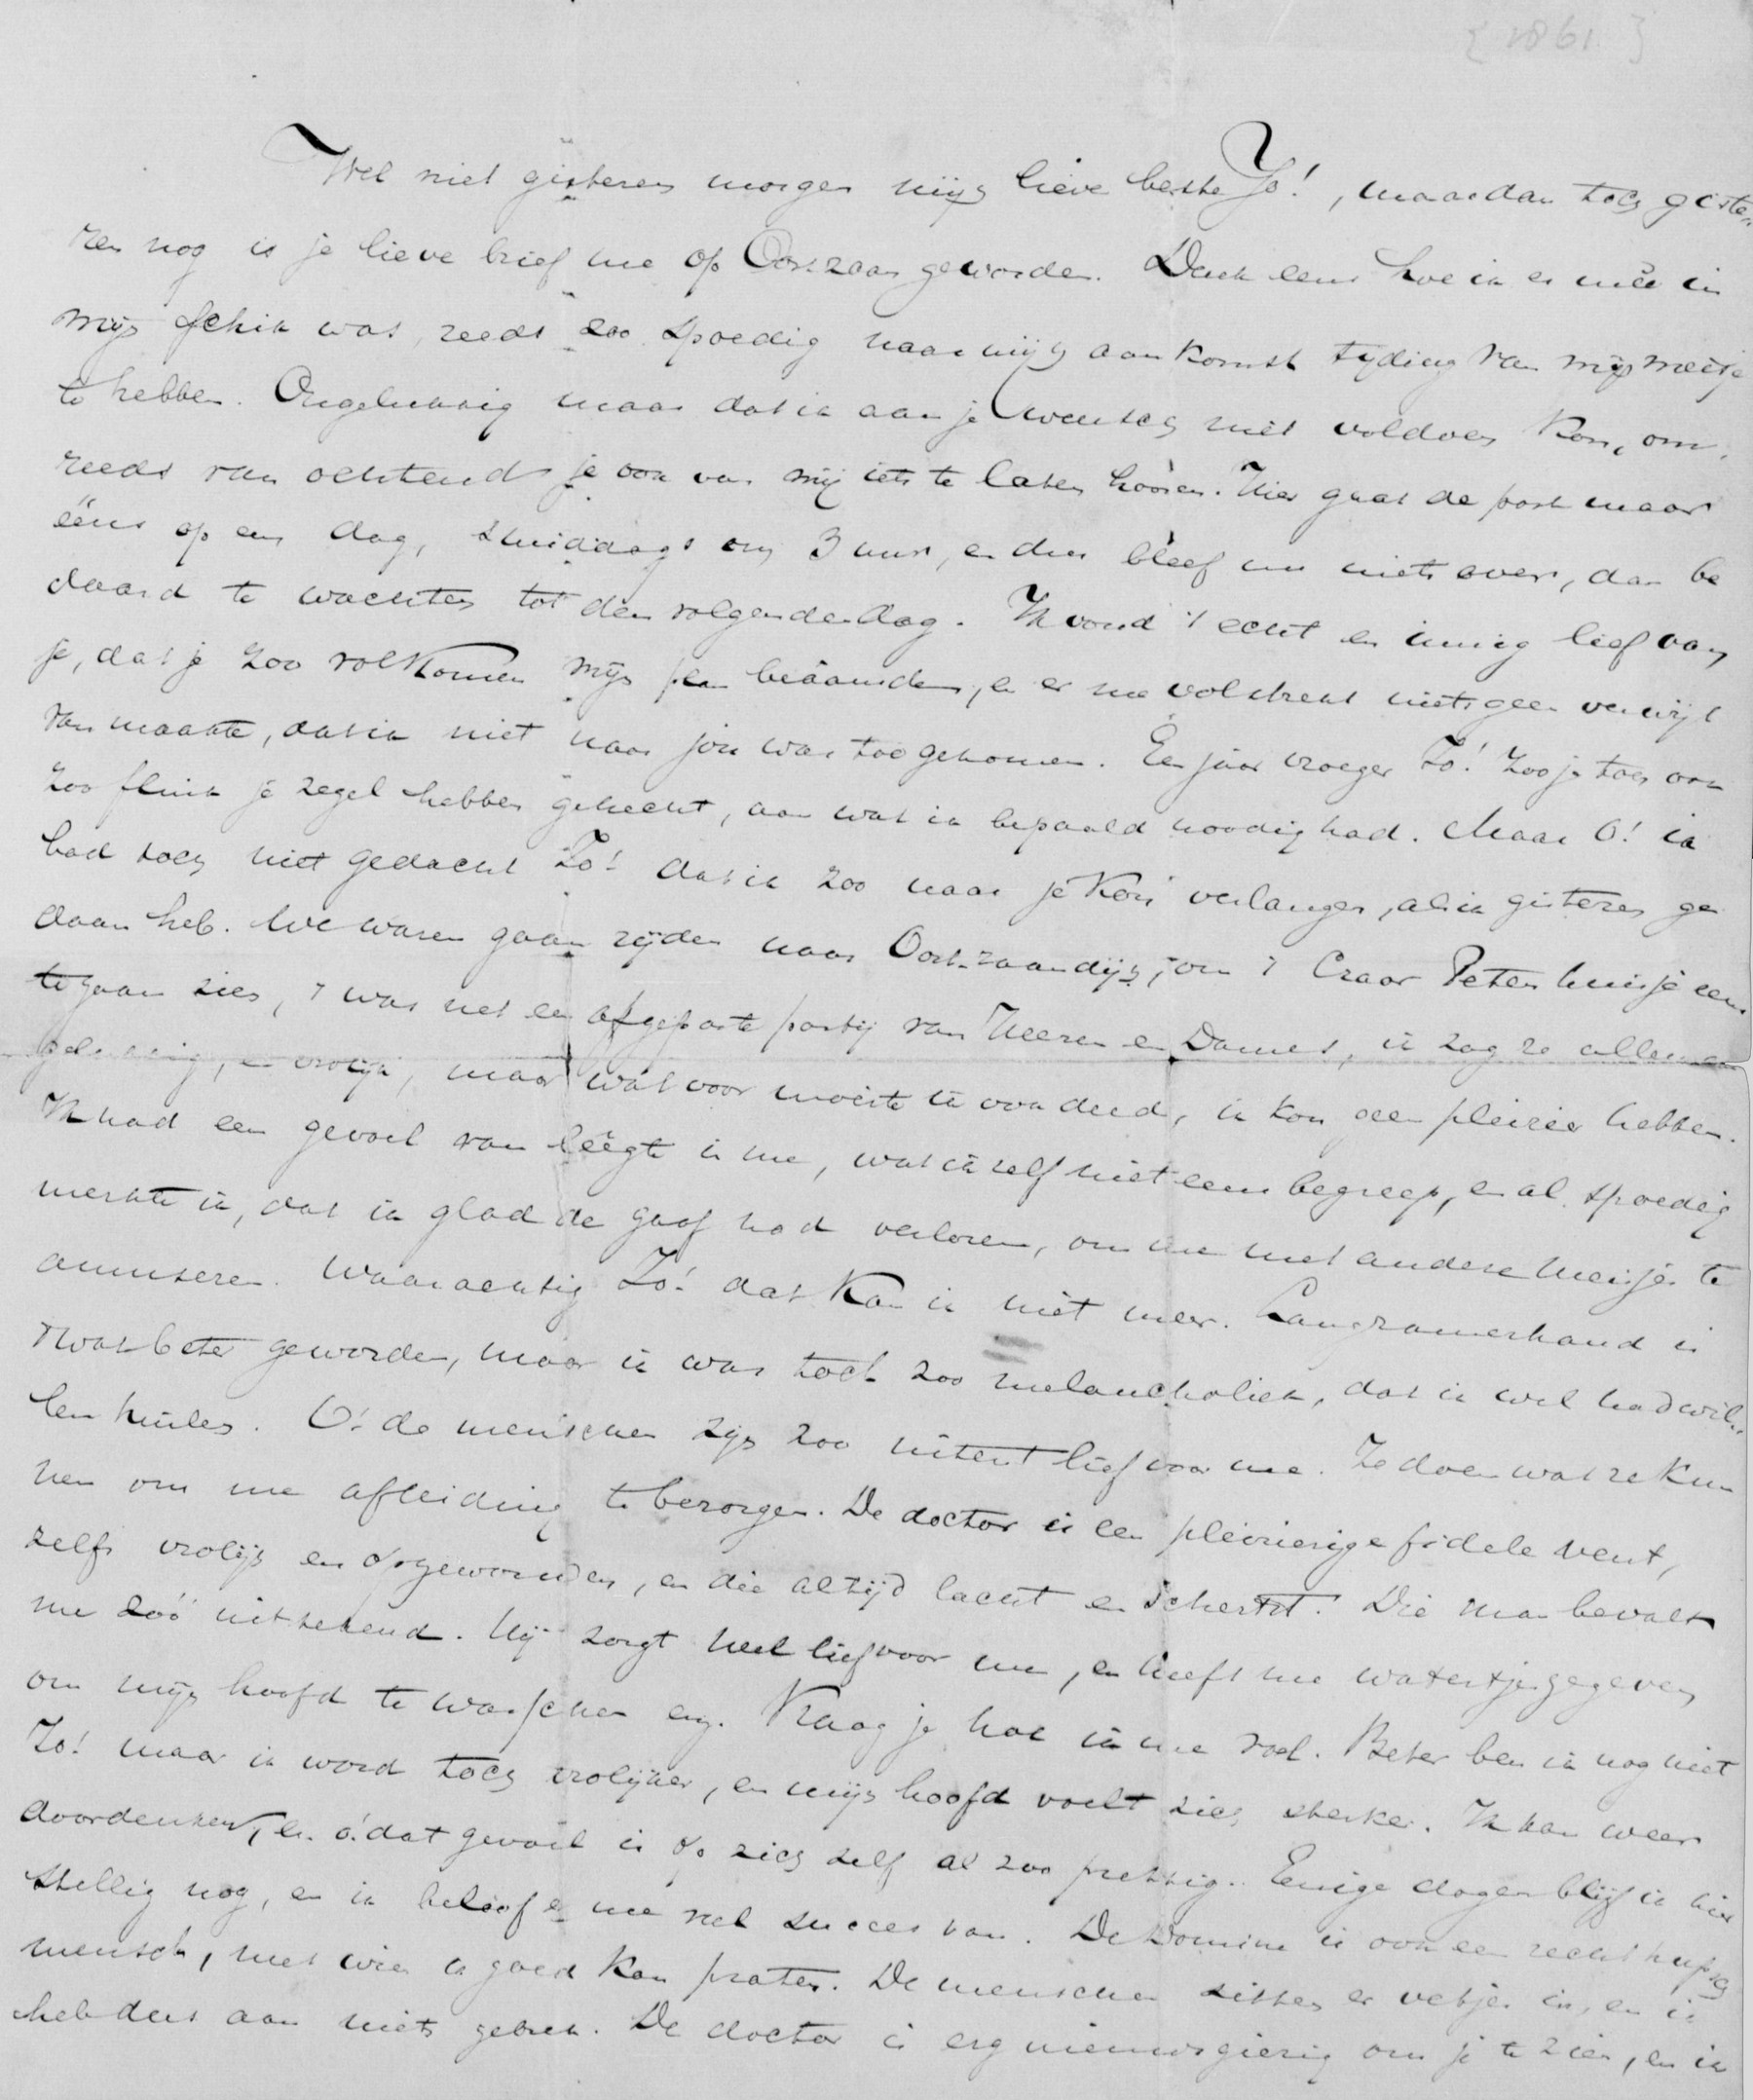 [1861]
Wel niet gisteren morgen mijn lieve beste Jo!, maar dan toch giste
ren nog is je lieve brief me op Oostzaan geworden. Denk eens hoe ik er mêe in
mijn schik was, reeds zoo spoedig naar mijn aankomst tijding van mijn meisje
te hebben. Ongelukkig maar dat ik aan je wensch niet voldoen kon, om
reeds van ochtend je ook van mij iets te laten hooren. Hier gaat de post maar
ééns op een dag, smiddags om 3 uur, en dus bleef me niets over, dan be
daard te wachten tot den volgenden dag. Ik vond 't echt en innig lief van
je, dat je zoo volkomen mijn plan beäamden, en er me volstrekt niets geen verwijt
van maakte, dat ik niet naar jou was toegekomen. Een jaar vroeger Jo! zou je toch ook
zoo flink je zegel hebben gehecht, aan wat ik bepaald noodig had. Maar O! ik
had toch niet gedacht Jo! dat ik zoo naar je kon verlangen, als ik gisteren ge
daan heb. We waren gaan rijden naar Oostzaandijk, om 't Czaar Peter huisje eens
te gaan zien, 't was net een afgepaste partij van Heeren en Dames, ik zag ze allemaal
gelukkig, en vrolijk, maar wat voor moeite ik ook deed, ik kon geen pleizier hebben.
Ik had een gevoel van leêgte in me, wat ik zelf niet eens begreep, en al spoedig
merkte ik, dat ik glad de gaaf had verloren, om me met andere meisjes te
amuseren. Waarachtig Jo! dat kan ik niet meer. Langzamerhand is
't wat beter geworden, maar ik was toch zoo melancholiek, dat ik wel had wil
len huilen. O! de menschen zijn zoo uiterst lief voor me. Ze doen wat ze kun
nen om me afleiding te bezorgen. De doctor is een pleizierige fidele vent,
zelfs vrolijk en opgewonden, en die altijd lacht en schertst. Die man bevalt
me zóó uitstekend. Hij zorgt heel lief voor me, en heeft me watertjes gegeven
om mijn hoofd te wasschen enz. Vraag je hoe ik me voel. Beter ben ik nog niet
Jo! maar ik word toch vrolijker, en mijn hoofd voelt zich sterker. Ik kan weer
doordenken, en ó! dat gevoel is op zich zelf al zoo prettig. Eenige dagen blijf ik hier
stellig nog, en ik beloof er me veel succes van. De Domine is ook een recht hupsch
mensch, met wien ik goed kan praten. De menschen zitten er vetjes in, en ik
heb dus aan niets gebrek. De doctor is erg nieuwsgierig om je te zien, en ik